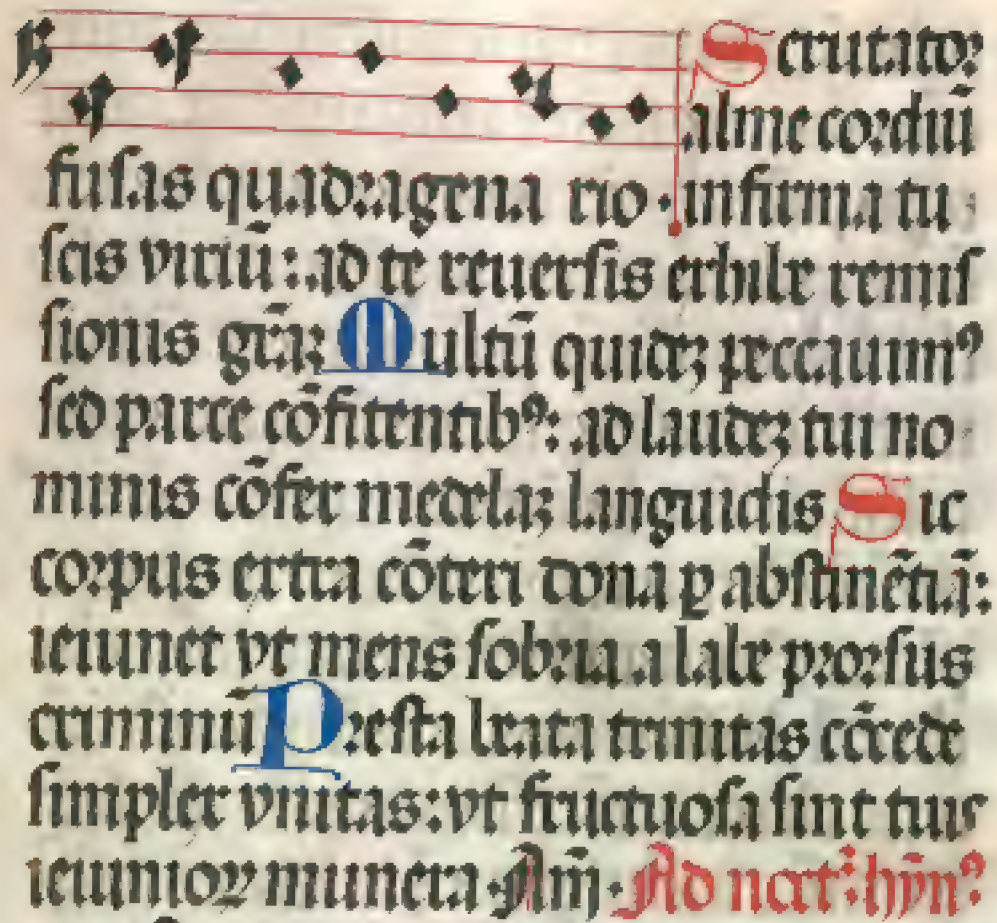 Scrutator
alme cordiū
fusas quadragena rio · infirma tu
scis viriū : ad te reuersis exhibe remis
sionis gr̄aꝫ Multū quideꝫ peccauimꝰ
sed parce cōfitentibꝰ : ad laudeꝫ tui no
minis cōfer medelaꝫ languidis Sic
corpus extra cōteri dona ꝑ abstinētiā :
ieiunet vt mens sobria a labe prorsus
criminū Presta beata trinitas cōcede
simplex vnitas : vt fructuosa sint tuis
ieiunioꝝ munera · Am̄ · Ad noct : hȳnꝰ